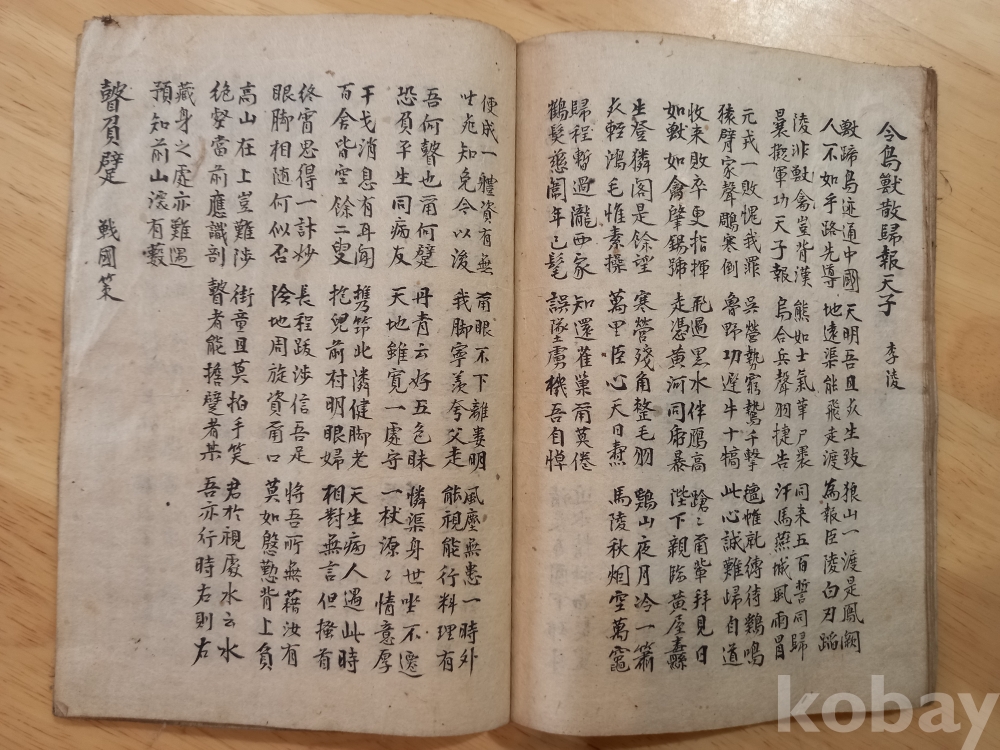 今鳥獸散歸報天子 李陵
獸蹄鳥迹通中國 天明吾且矢生致 狼山一渡是鳳闕
人不如乎路先導 地遠渠能飛走渡 為報臣陵白刃蹈
陵非獸禽豈背漢 熊如士氣革尸褁 同来五百誓同歸
曩擬軍功天子報 烏合兵聲羽捷告 汗馬燕城風雨冒
元戎一敗愧我罪 吳營勢窮驚千擊 氊帷就縛待鷄鳴
猿臂家聲鵰寒倒 魯野功遲牛十犒 此心誠難歸自道
收来敗卒更指揮 飛過黑水伴鴈高 蹌〻甭輩拜見日
如獸如禽肇錫號 走憑黄河同虎暴 陛下親臨黄屋纛
坐登獜閣是餘望 寒營殘角整毛羽 鶗山夜月冷一簫
矢輕鴻毛惟素操 萬里臣心天日燾 馬陵秋烟空萬竈
歸程暫過瀧西家 知還萑巢甭莫倦
鶴髮慈闈年已髦 誤墜虜機吾自悼
便成一體資有無 甭眼不下離婁明 風塵無恙一時外
知免今以後 我脚寧羡夸父走 能視能行料理有
吾何瞽也甭何躄 丹青云好五色眛 憐渠身世坐不遷
恐負子生同病友 天地雖寬一處守 一杖源〻情意厚
干戈消息有耳聞 携筇此潾健脚老 天生病人遇此時
百舍皆空餘二叟 抱兒前村明眼婦 相對無言但搔首
終宵思得一計妙 長程跋涉信吾足 將吾所無藉汝有
眼脚相随何似否 冷地周旋資甭口 莫如慇懃背上負
高山在上豈難陟 街童且莫拍手笑 君於視處水云水
絶壑當前應識剖 瞽者能擔躄者某 吾亦行時右則右
藏身之處亦難遇
預知前山深有藪
瞽負躄 戰國策
kobay